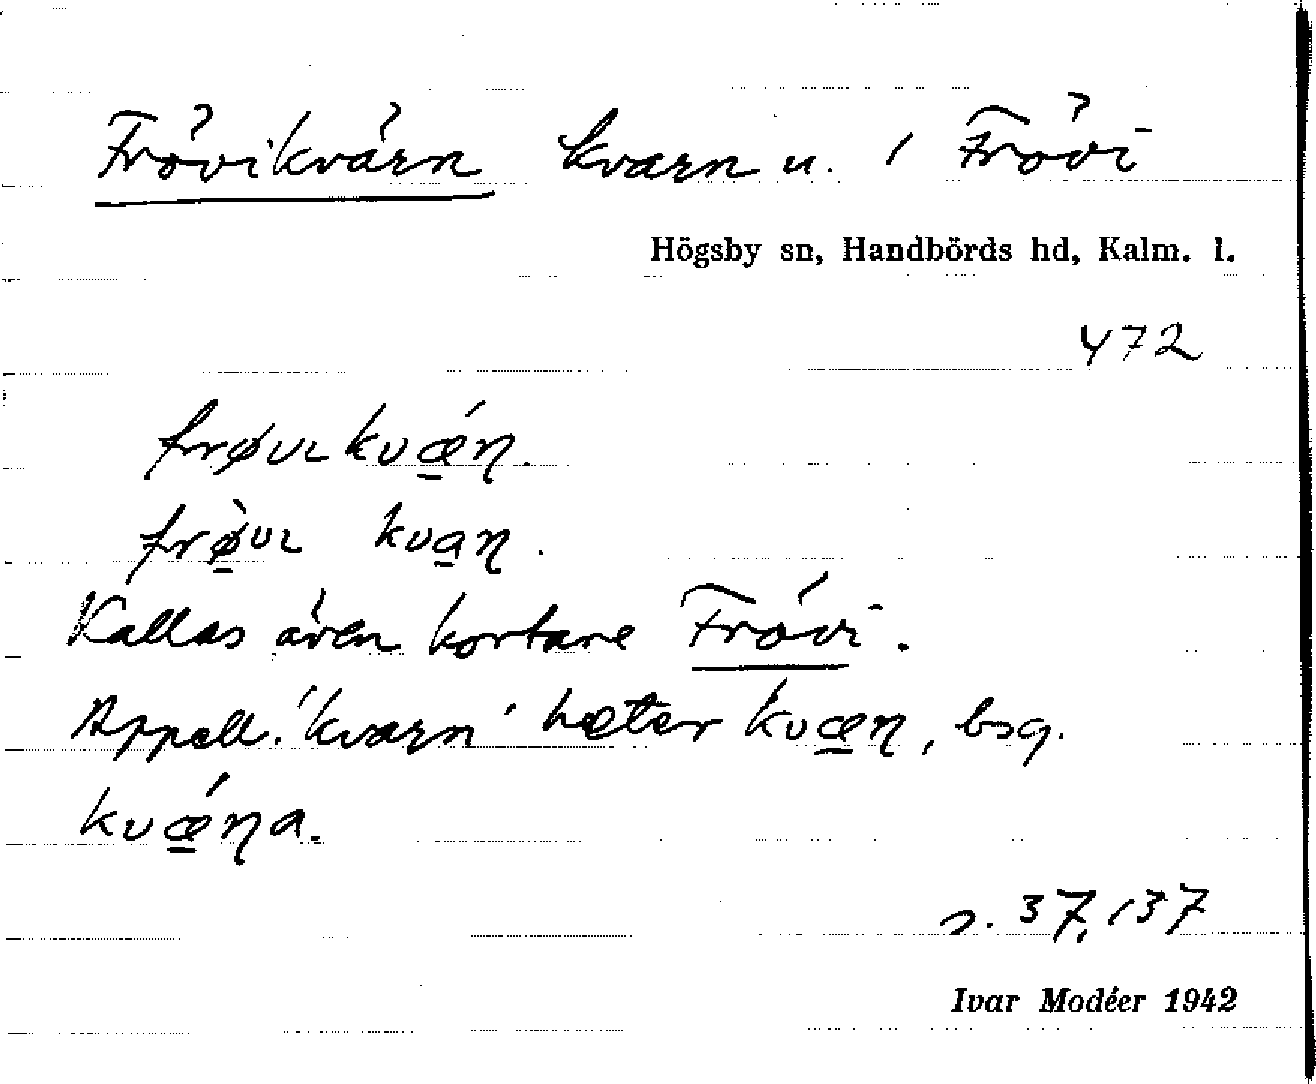 Frövikvärn kvarn u. i Frövi
Högsby sn, Handbörds hd, Kalm. l.
472
frøvɩkvǽɳ.
frø̀vɩ kvaɳ.
Kallas även kortare Frövi.
Appell. 'kvarn' heter kvæɳ, bsg.
kvǽɳa.
s. 37, 137
Ivar Modéer 1942